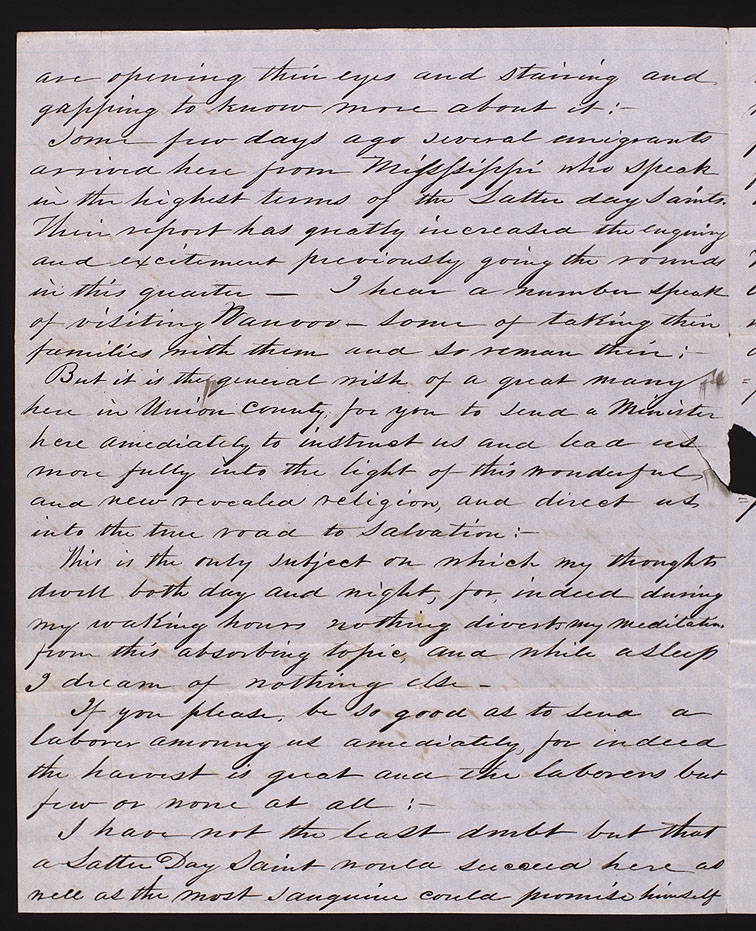 are opening thir eyes and stairing and
gapping to know more about it:-
Some few days ago several emigrants
arrived here from Mississippi who speak
in the highest terms of the Latter day Saints.
Thir report has greatly increased the enquiry
and excitement previously going the rounds
in this quarter — I hear a number speak
of visiting Nauvoo – some of taking thir
families with them and so reman thir:-
But it is the general wish of a great many
here in Union County, for you to send a Minister
here amediately to instruct us and lead us
more fully into the light of this wonderful,
and new revealed religion, and direct us
into the true road to salvation:-
This is the only subject on which my thoughts
dwell both day and night, for indeed during
my waking hours nothing diverts my meditation
from this absorbing topic, and while asleep
I dream of nothing else –
If you please, be so good as to send a
laborer amoung us amediately, for indeed
the harvest is great and the laborers but
few or none at all :-
I have not the least doubt but that
a Latter Day Saint would succeed here as
well as the most sanguine could promise himself